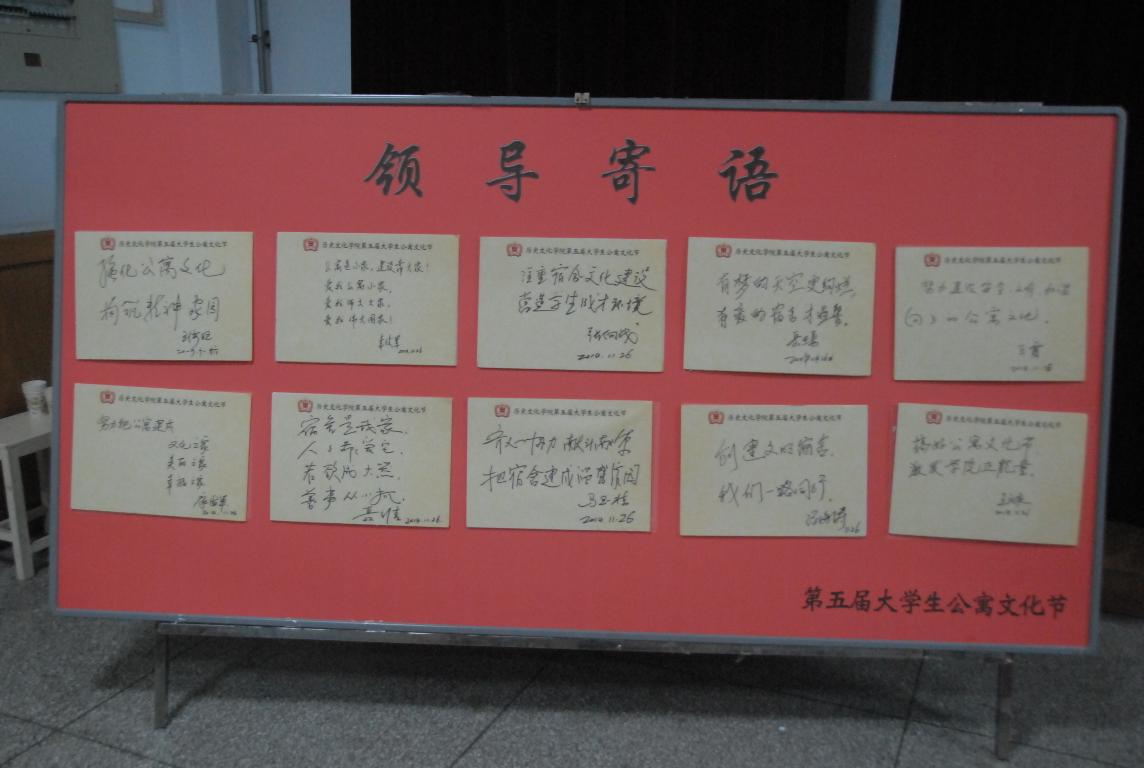 领导寄语
历史文化学院第五届大学生公寓文化节
强化公寓文化
构筑精神家园
历史文化学院第五届大学生公寓文化节
公寓是小家，建设靠大家！
爱我公寓小家，
爱我师大大家，
爱我伟大国家！
历史文化学院第五届大学生公寓文化节
注重宿舍文化建设
营造学生成才环境
2014.11.26
历史文化学院第五届大学生公寓文化节
有梦的天空更绚烂，
有爱的宿舍才温馨。
历史文化学院第五届大学生公寓文化节
努力建设安全、文明、和谐
公寓文化.
历史文化学院第五届大学生公寓文化节
努力把公寓建成
文化之家
美丽之家
幸福之家
2014.11.26
历史文化学院第五届大学生公寓文化节
宿舍是我家，
人人都爱它，
若欲成大器，
万事从小抓.
2014.11.26
历史文化学院第五届大学生公寓文化节
齐心协力
把宿舍建成温馨家园
2014.11.26
历史文化学院第五届大学生公寓文化节
创建文明宿舍，
我们一路同行.
11.26
历史文化学院第五届大学生公寓文化节
搞好公寓文化节
激发学院正能量.
第五届大学生公寓文化节